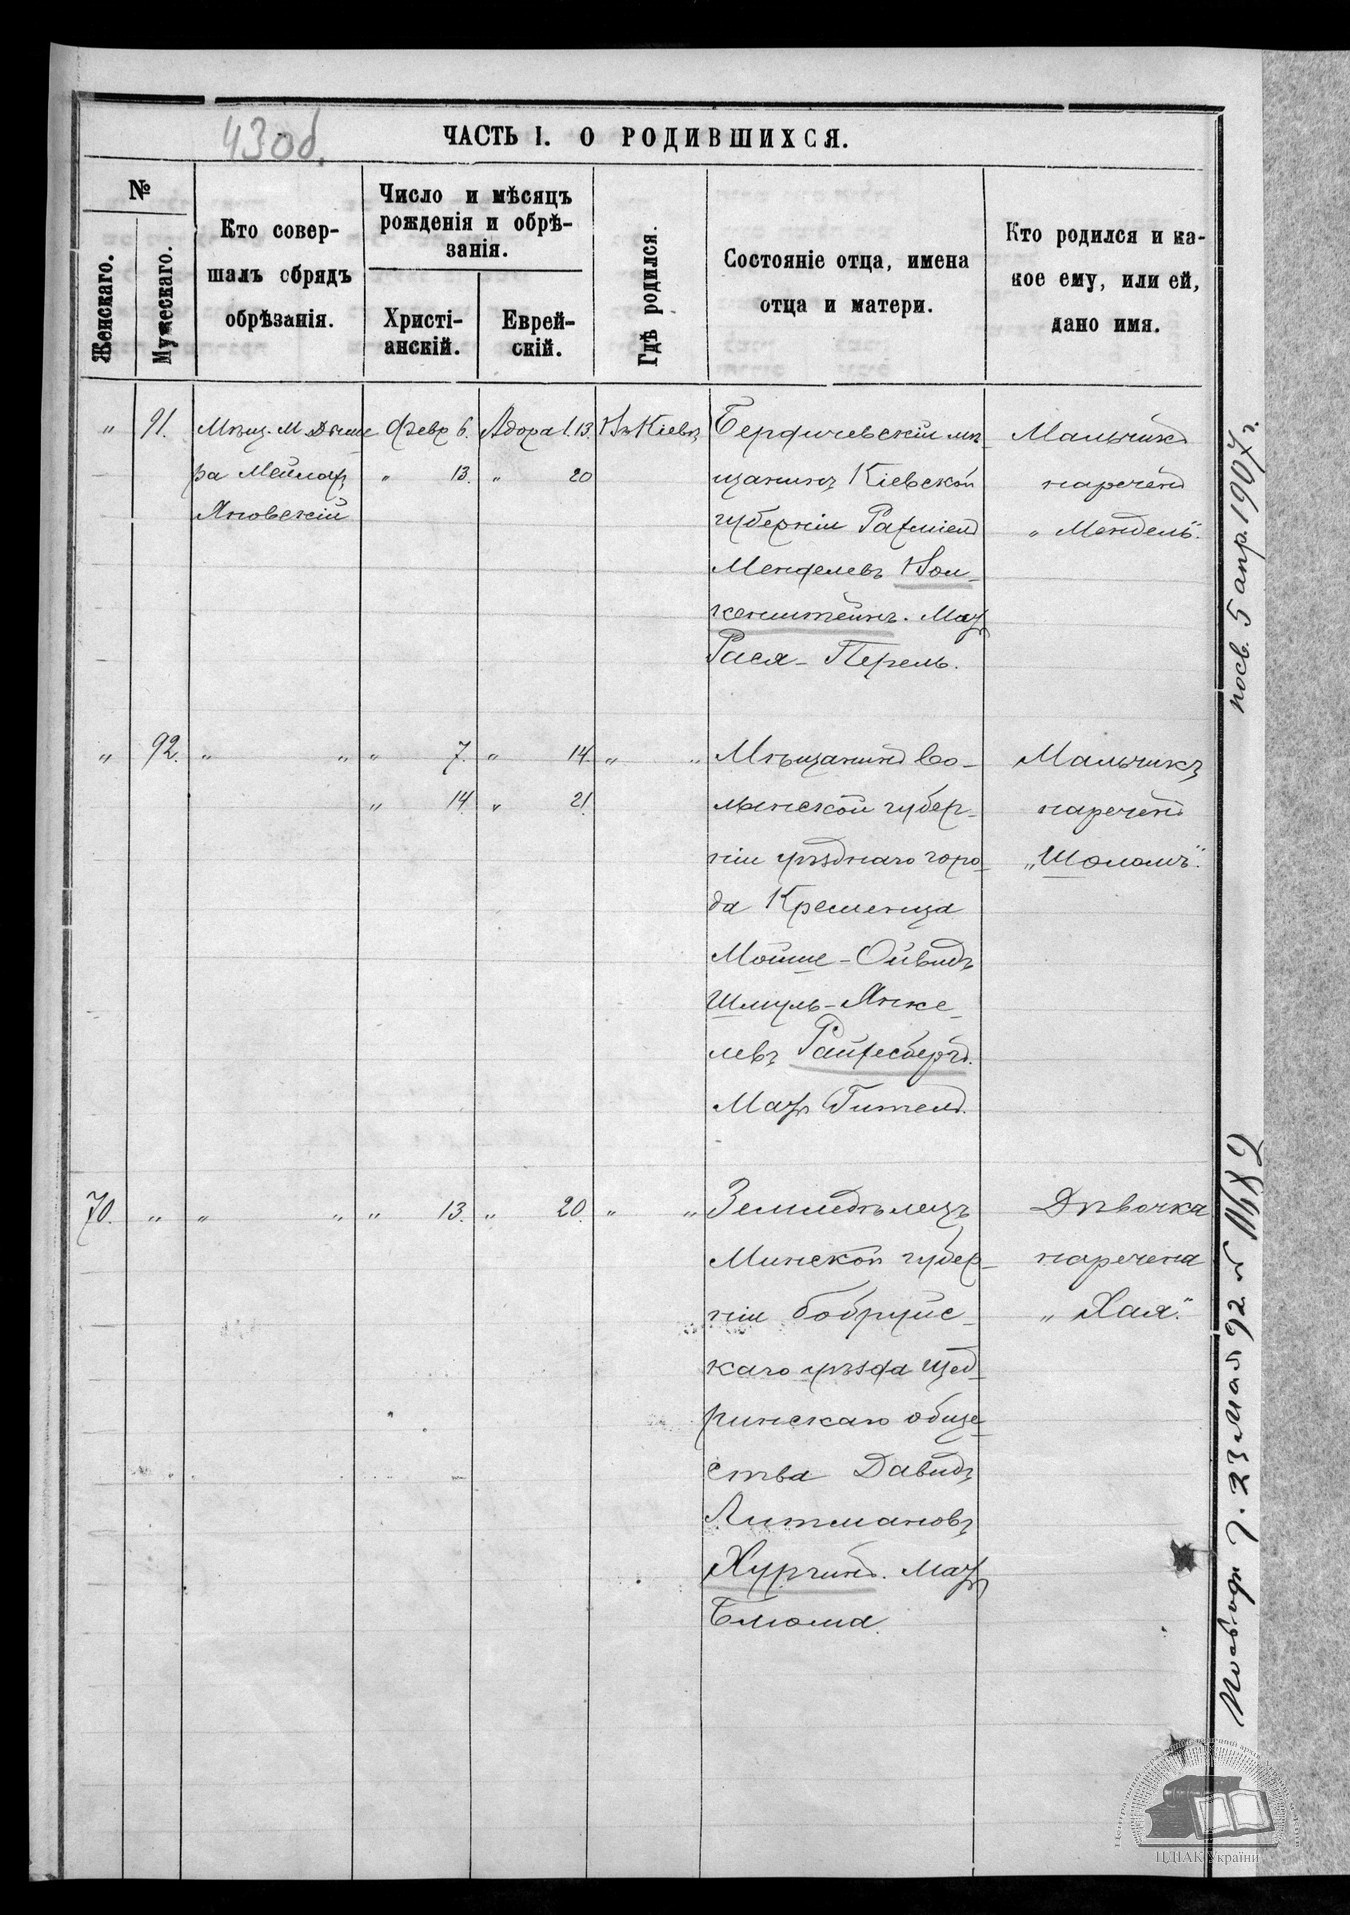 43 об.
ЧАСТЬ I. О РОДИВШИХСЯ.
№
Женскаго.
Мужескаго.
Кто совер-
шалъ обрядъ
обрѣзанія.
Число и мѣсяцъ
рожденія и обрѣ-
занія.
Христі-
анскій.
Еврей-
скій.
Гдѣ родился.
Состояніе отца, имена
отца и матери.
Кто родился и ка-
кое ему, или ей,
дано имя.
" 91. Мѣщ. м. Дыме
ра
Яновскій
Февр 6.
" 13.
Адора 1.13.
" 20
Въ Кіевѣ
Бердичевскій мѣ
щанинъ Кіевской
губерніи Рахмиелъ
Менделевъ Вол-
кенштейнъ. Мать
Рася-Перель.
Мальчикъ
нареченъ
"Мендель".
" 92. " "
" 7.
" 14
" 14.
" 21.
" "
Мѣщанинъ Во-
лынской губер-
ніи уѣзднаго горо-
да Кременца
Мойше-Ойвидъ
Шмуль-Янке-
левъ Райхесбергъ.
Мать Гителъ.
Мальчикъ
нареченъ
"Шоломъ".
70. " " " " 13. " 20. " "
Земледѣлецъ
Минской губер-
ніи Бобруйс-
каго уѣзда Щед-
ринскаго обще-
ства Давидъ
Литмановъ
Хургинъ. Мать
Блюма.
Дѣвочка
наречена
"Хая".
посв. 5 апр. 1907 г.
г. 23 мая 92 №
ЦДІАК України